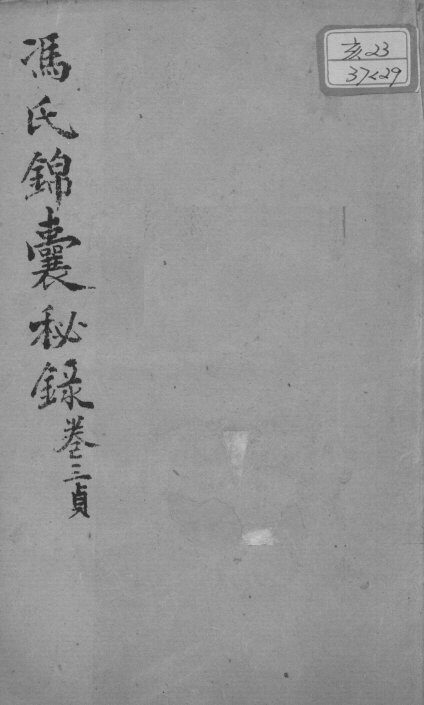 馮氏錦囊秘錄卷三貞
亥23
37<29